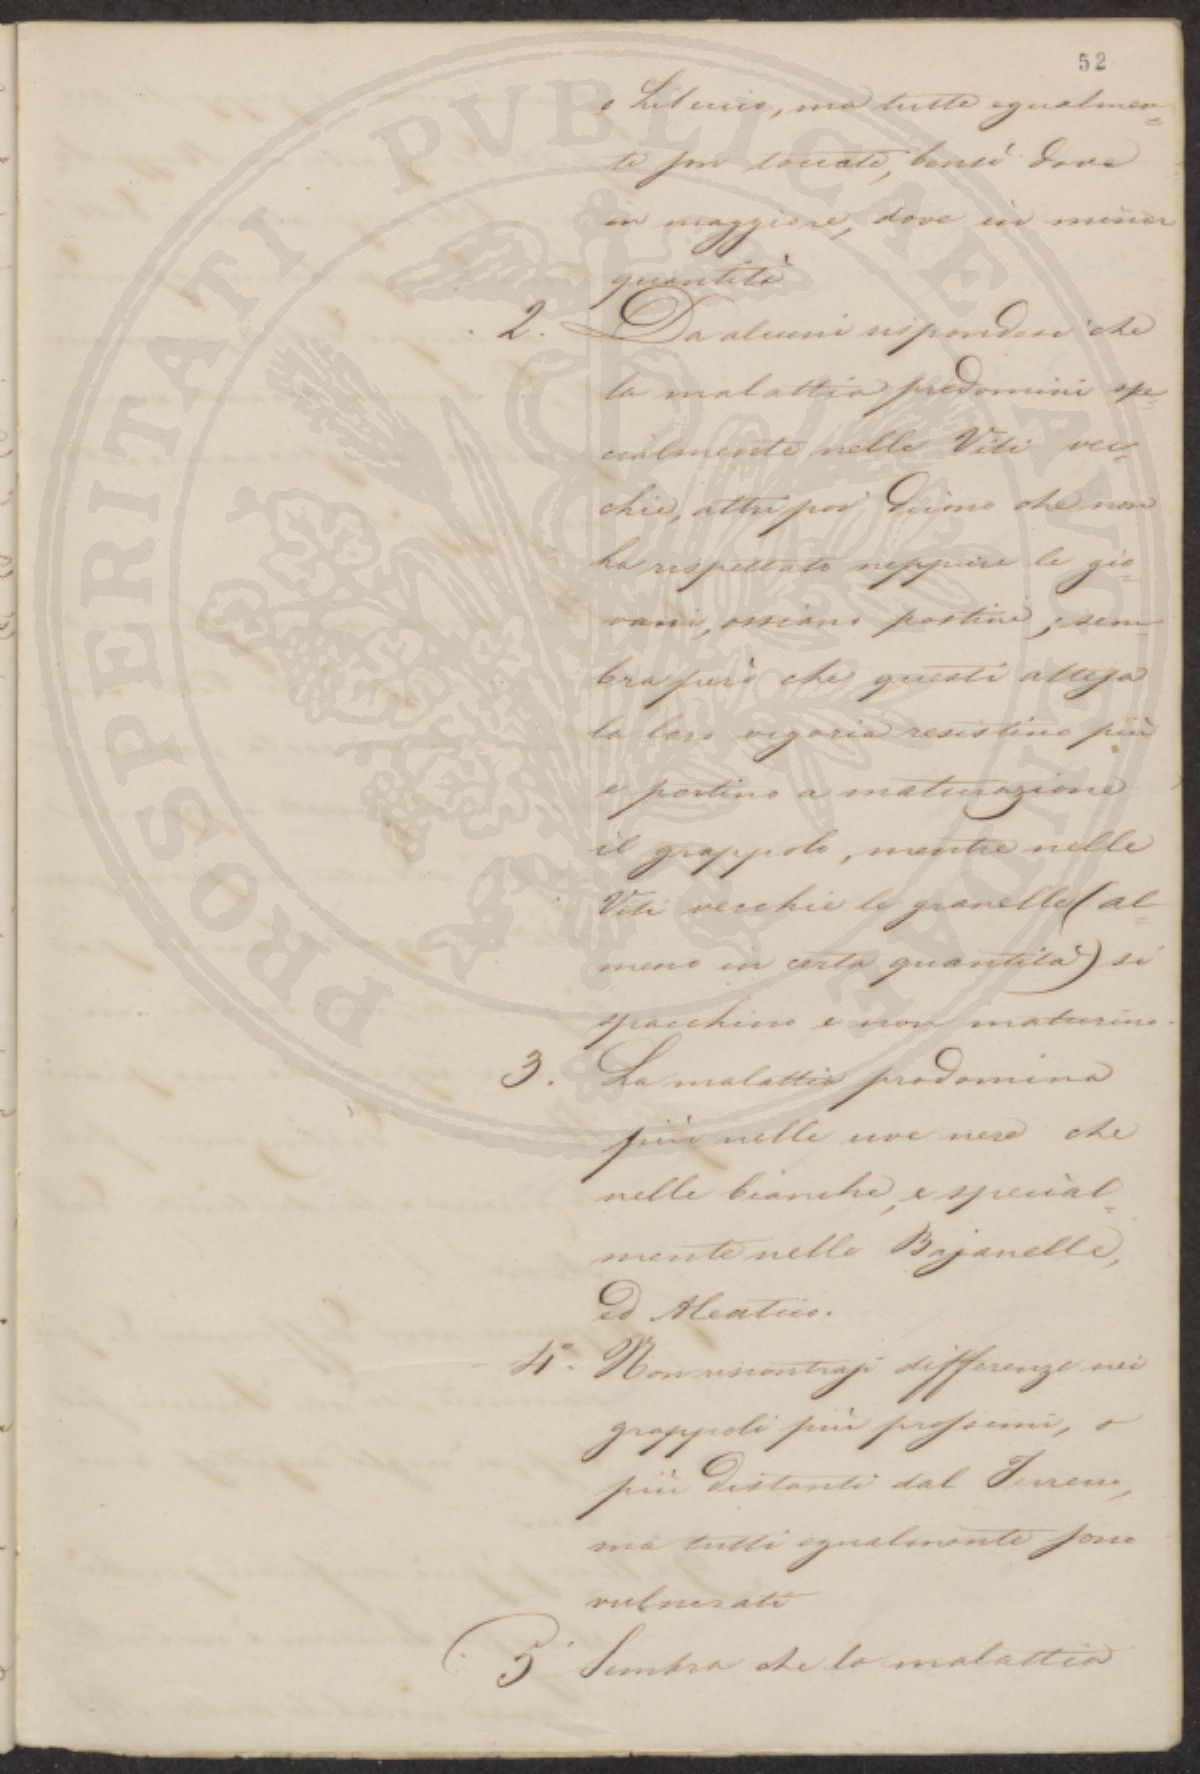 52
o Silicio, ma tutte egualmen=
te son toccate, bensì dove
in maggiore, dove in minor
quantità
2. Da alcuni rispondesi che
la malattia predomini spe=
cialmente nelle Viti vec=
chie, altri poi dicono che non
ha rispettato neppure le gio=
vani, ossiano postine; sem=
bra però che questi attesa
la loro vigoria resistino più
e portino a maturazione
il grappolo, mentre nelle
Viti vecchie le granelle (al=
meno in certa quantità) si
spacchino e non maturino.
3. La malattia predomina
più nelle uve nere che
nelle bianche, e special=
mente nelle Bajanelle,
ed Aleatico.
4°. Non riscontrasi differenze nei
grappoli più prossimi, o
più distanti dal Terreno,
ma tutti egualmente sono
vulnerati
5° Sembra che la malattia
PROSPERITATI PVBLICAE AVGENDAE